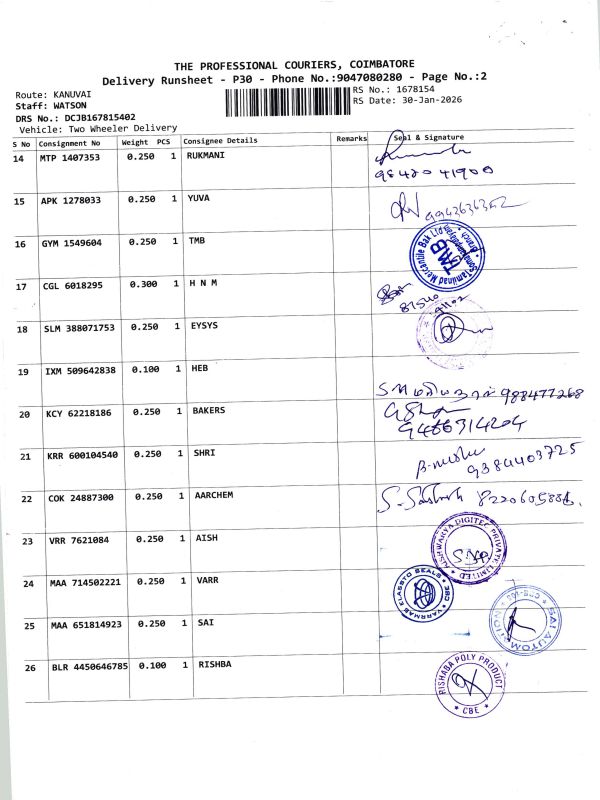 THE PROFESSIONAL COURIERS, COIMBATORE
Delivery Runsheet - P30 - Phone No.:9047080280 - Page No.:2
Route: KANUVAI
RS No.: 1678154
Staff: WATSON
RS Date: 30-Jan-2026
DRS No.: DCJB167815402
Vehicle: Two Wheeler Delivery
S No Consignment No Weight PCS Consignee Details Remarks Seal & Signature
14 MTP 1407353 0.250 1 RUKMANI
98420 41900
15 APK 1278033 0.250 1 YUVA
16 GYM 1549604 0.250 1 TMB
Tamilnad Mercantile Bak Ltd
TMB
17 CGL 6018295 0.300 1 H N M
18 SLM 388071753 0.250 1 EYSYS
19 IXM 509642838 0.100 1 HEB
988477268
20 KCY 62218186 0.250 1 BAKERS
9486314204
21 KRR 600104540 0.250 1 SHRI
9384403725
22 COK 24887300 0.250 1 AARCHEM
23 VRR 7621084 0.250 1 AISH
AISHWARYA DIGITEC PRIVATE LIMITED
24 MAA 714502221 0.250 1 VARR
VARRMAB ELASSTO SEALS CBE
25 MAA 651814923 0.250 1 SAI
SAI AUTOMATION
26 BLR 4450646785 0.100 1 RISHBA
RISHABA POLY PRODUCT
CBE